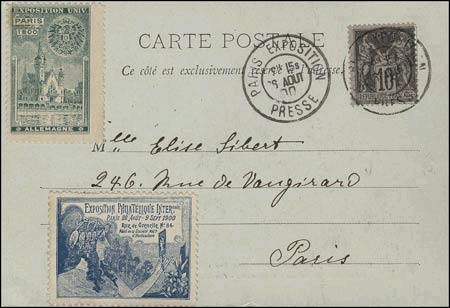 EXPOSITION UNIV.
PARIS
1900
ALLEMAGNE
CARTE POSTALE
Ce côté est exclusivement réservé à l'adresse.
PARIS EXPOSITION
AOUT
00
PRESSE
10
Mlle Elise Sibert
246. Rue de Vaugirard
Paris
EXPOSITION PHILATELIQUE INTERnale
PARIS 28 AOUT-9 SEPT 1900
RUE DE GRENELLE No 84